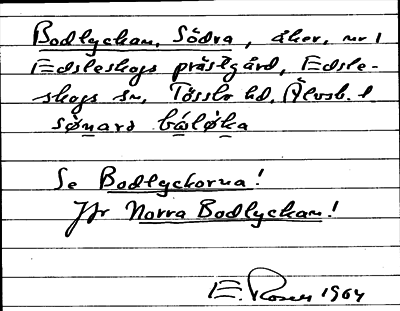 Bodlyckan, Södra, åker, nr 1
Edsleskogs prästgård, Edsle-
skogs sn, Tössbo hd, Älvsb. l.
sønard båsløka
Se Bodlyckorna!
Jfr Norra Bodlyckan!
E. Rosén 1964